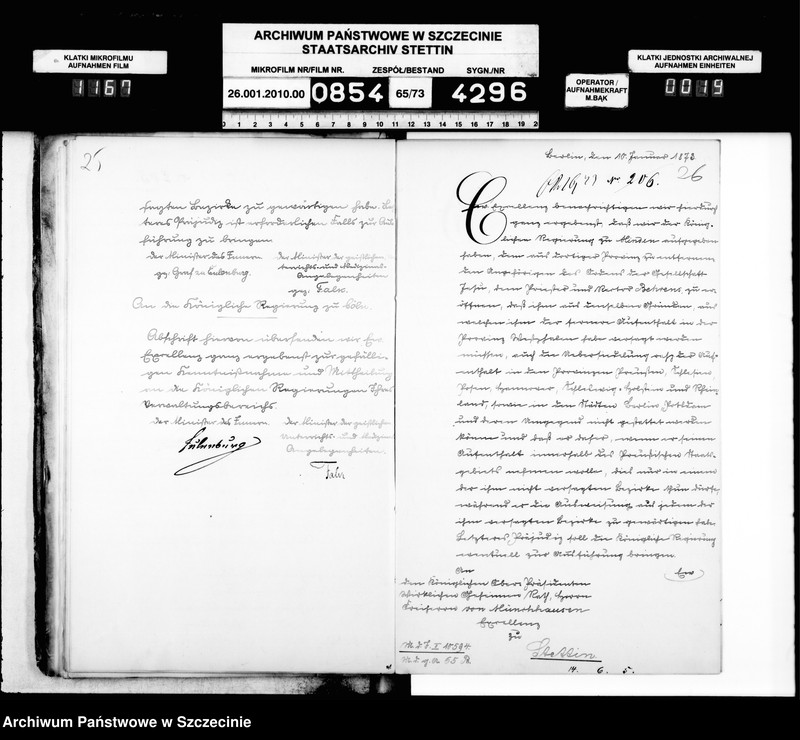 ARCHIWUM PAŃSTWOWE W SZCZECINIE
STAATSARCHIV STETTIN
KLATKI MIKROFILMU
AUFNAHMEN FILM
1167
MIKROFILM NR/FILM NR. ZESPÓŁ/BESTAND SYGN./NR
26.001.2010.00 0854 65/73 4296
OPERATOR /
AUFNAHMEKRAFT
M.BĄK
KLATKI JEDNOSTKI ARCHIWALNEJ
AUFNAHMEN EINHEITEN
0019
0 1 2 3 4 5 6 7 8 9 10 11 12 13 14 15 16 17 18 19 20
25
sagten Bezirke zu gewärtigen habe. Letz
teres Präjudiz ist erforderlichen Falls zur Aus
führung zu bringen
der Minister des Innern der Minister der geistlichen
Unterrichts- und Medizinal-
Angelegenheiten
gez. Graf zu Eulenburg.
gez. Falk.
An die Königliche Regierung zu Cöln.
Abschrift hiervon übersenden wir Ew
Excellenz ganz ergebenst zur gefälli
gen Kenntnißnahme und Mittheilung
an die Königlichen Regierungen Ihres
Verwaltungsbereichs.
der Minister des Innern der Minister der geistlichen
Unterrichts- und Medizinal
Angelegenheiten.
Eulenburg
Falk
Berlin, den 10. Januar 1873
26
No 206.
Euer Excellenz benachrichtigen wir hierdurch
ganz ergebenst, daß wir der König-
lichen Regierung zu Minden aufgegeben
haben, dem aus dortiger Provinz zu entfernen
den Angehörigen des Ordens der Gesellschaft
Jesu, dem Priester und Rector Behrens zu er
öffnen, daß ihm aus denselben Gründen, aus
welchen ihm der fernere Aufenthalt in der
Provinz Westphalen habe versagt werden
müssen, auch die Uebersiedelung resp der Auf-
enthalt in den Provinzen Preußen, Schlesien
Posen, Hannover, Schleswig-Holstein und Rhein
land, sowie in den Städten Berlin Potsdam
und deren Umgegend nicht gestattet werden
könne und daß er daher, wenn er seinen
Aufenthalt innerhalb des Preußischen Staats-
gebiets nehmen wolle, dies nur in einem
der ihm nicht versagten Bezirke thun dürfe,
während er die Ausweisung aus jedem der
ihm versagten Bezirke zu gewärtigen habe.
Letzteres Präjudiz soll die Königliche Regierung
eventuell zur Ausführung bringen.
An
Ew
den Königlichen Ober Präsidenten
Wirklichen Geheimen Rath, Herrn
Freiherrn von Münchhausen
Excellenz
zu
Stettin
M. d. J. II 10594.
14. 6. 5.
Archiwum Państwowe w Szczecinie
Archiwum Państwowe w Szczecinie